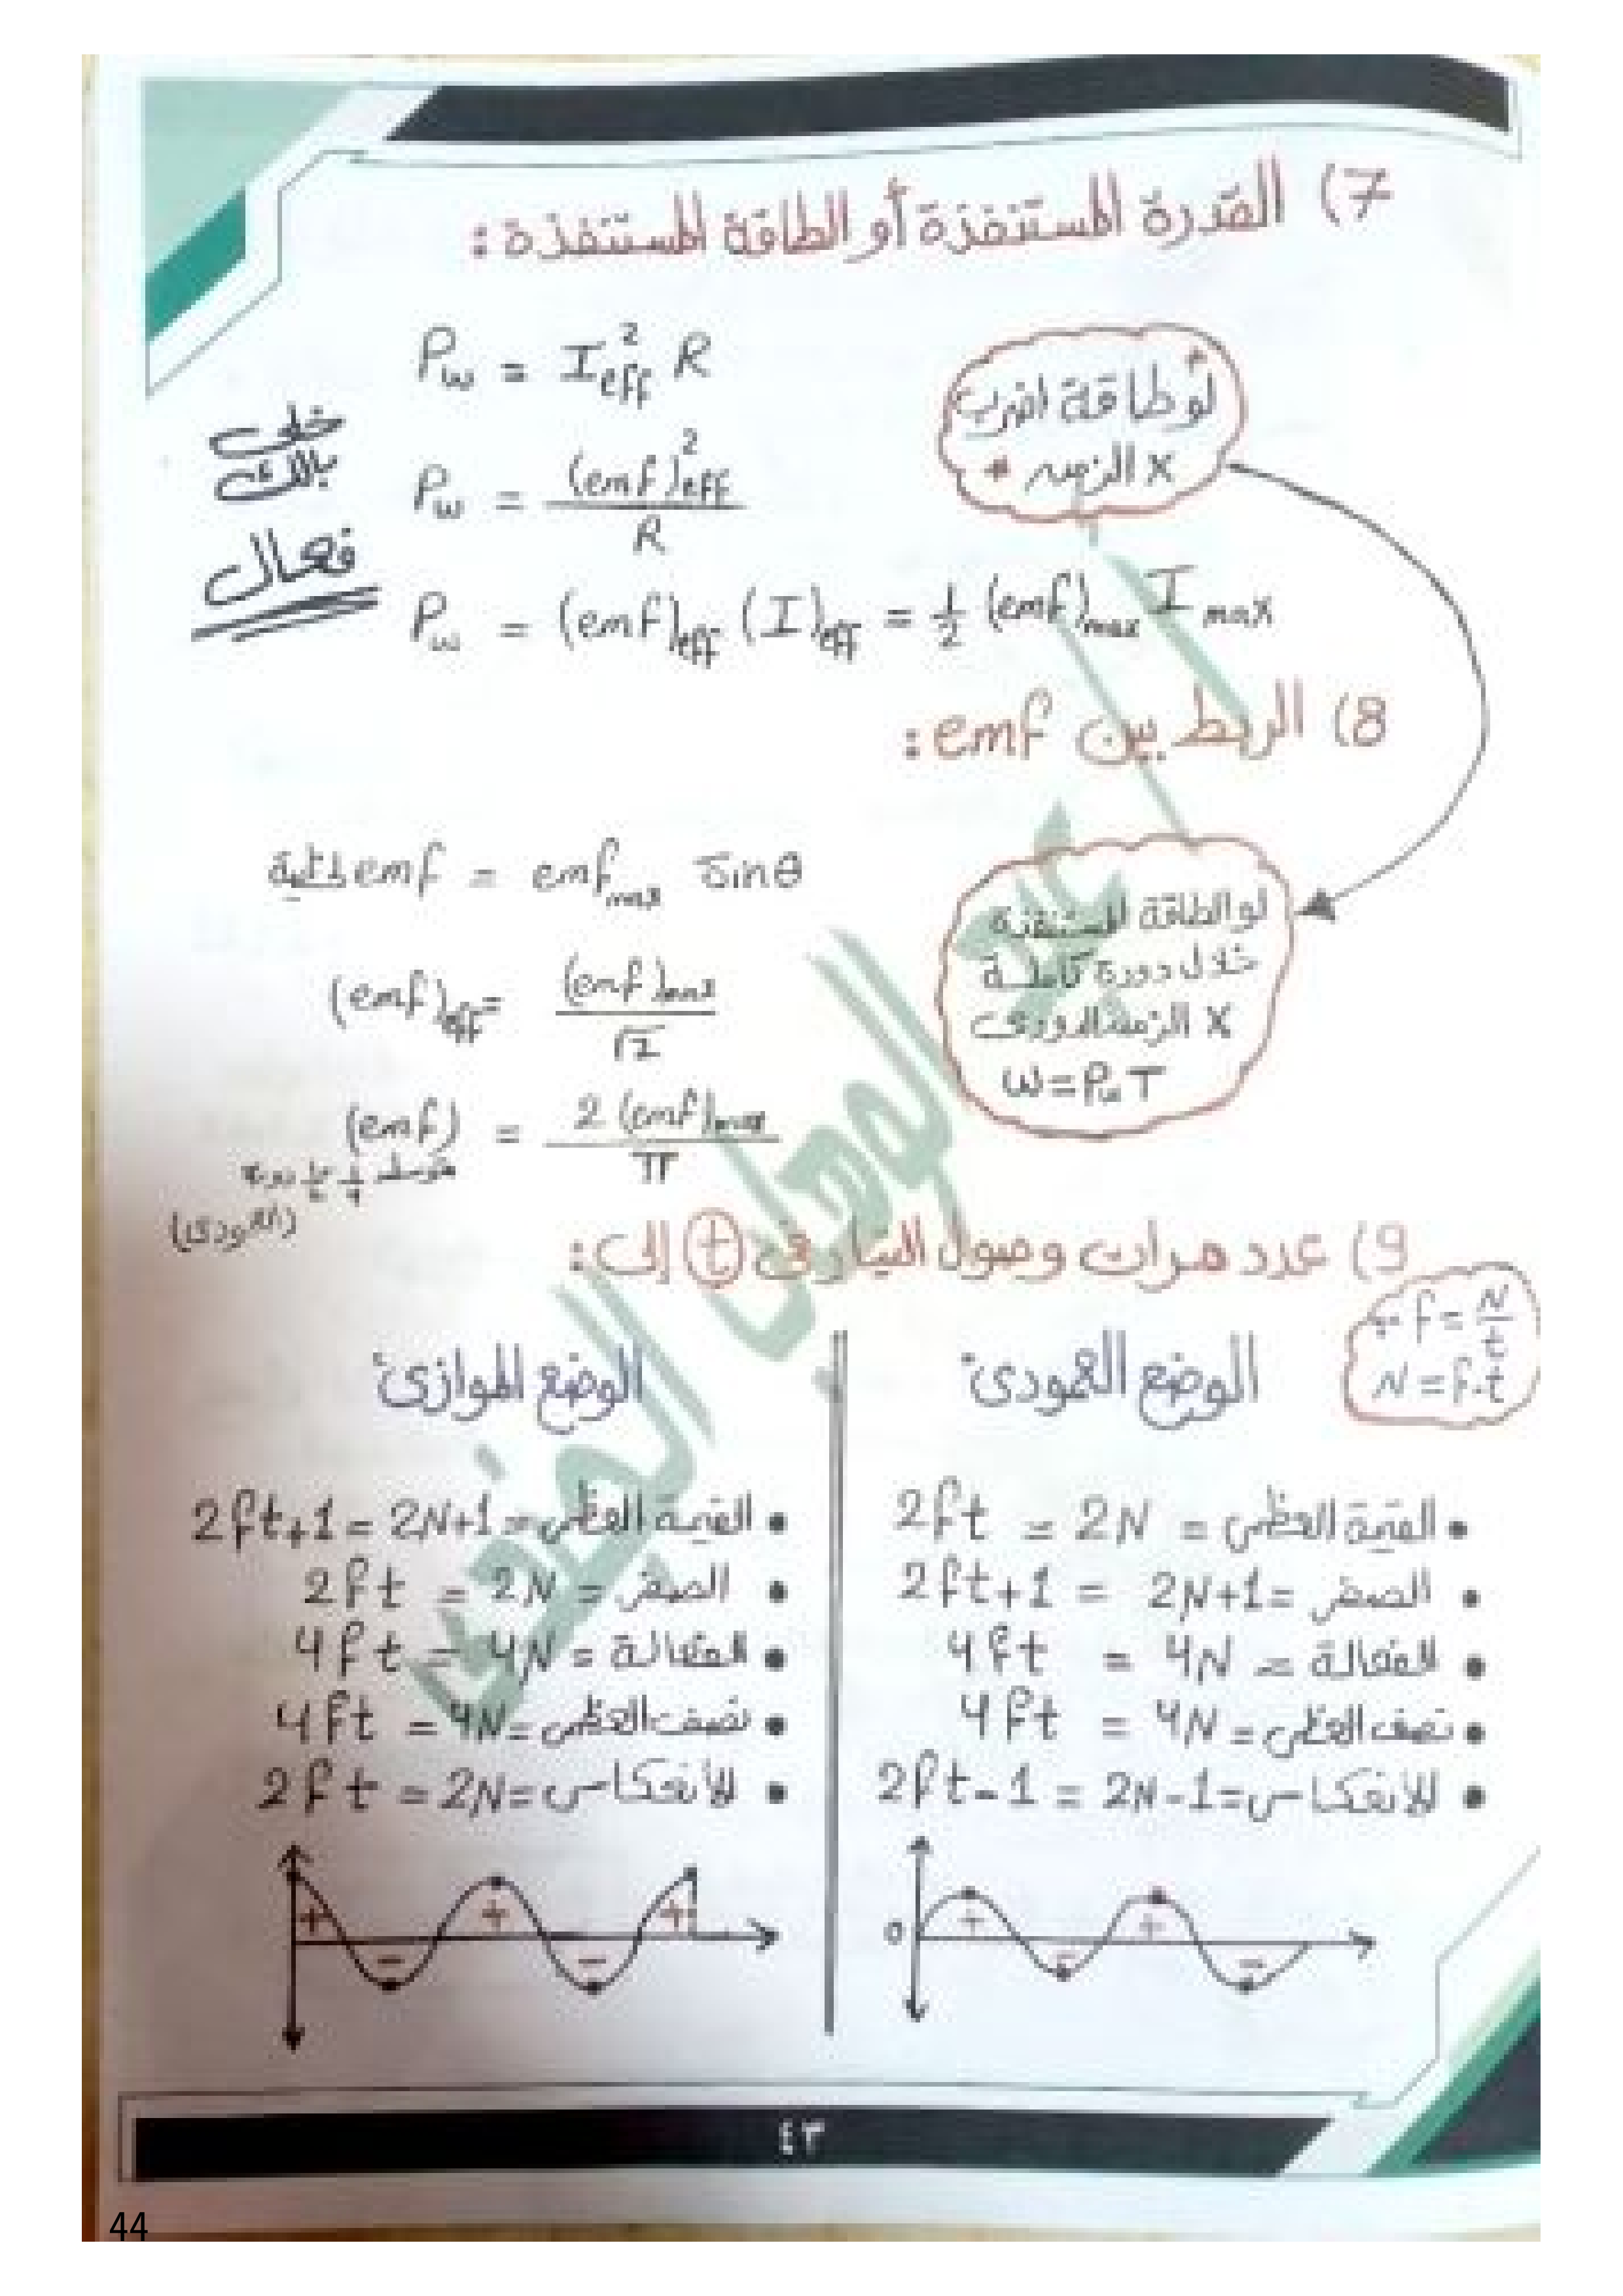 7) القدرة المستنفزة أو الطاقة المستنفزة :
P_w = I_eff^2 R
* لو طاقة اضرب
x الزمن *
خلى
بالك
فعال
P_w = (emf)^2_eff / R
P_w = (emf)_eff (I)_eff = 1/2 (emf)_max I_max
8) الربط بين emf :
emf لحظية = emf_max Sinθ
(emf)_eff = (emf)_max / √2
(emf) متوسط 1/4 ، 1/2 دورة = 2 (emf)_max / π
(العمودى)
لو الطاقة المستنفزة
خلال دورة كاملة
x الزمن الدورى
W = P_w T
9) عدد مرات وصول التيار فى t إلى :
f = N/t
N = f.t
الوضع العمودى
• القيمة العظمى = 2N = 2ft
• الصفر = 2N+1 = 2ft+1
• الفعالة = 4N = 4ft
• نصف العظمى = 4N = 4ft
• الأنعكاس = 2N-1 = 2ft-1
0
+ - + -
الوضع الموازى
• القيمة العظمى = 2N+1 = 2ft+1
• الصفر = 2N = 2ft
• الفعالة = 4N = 4ft
• نصف العظمى = 4N = 4ft
• الأنعكاس = 2N = 2ft
+ - + - +
٤٣
44